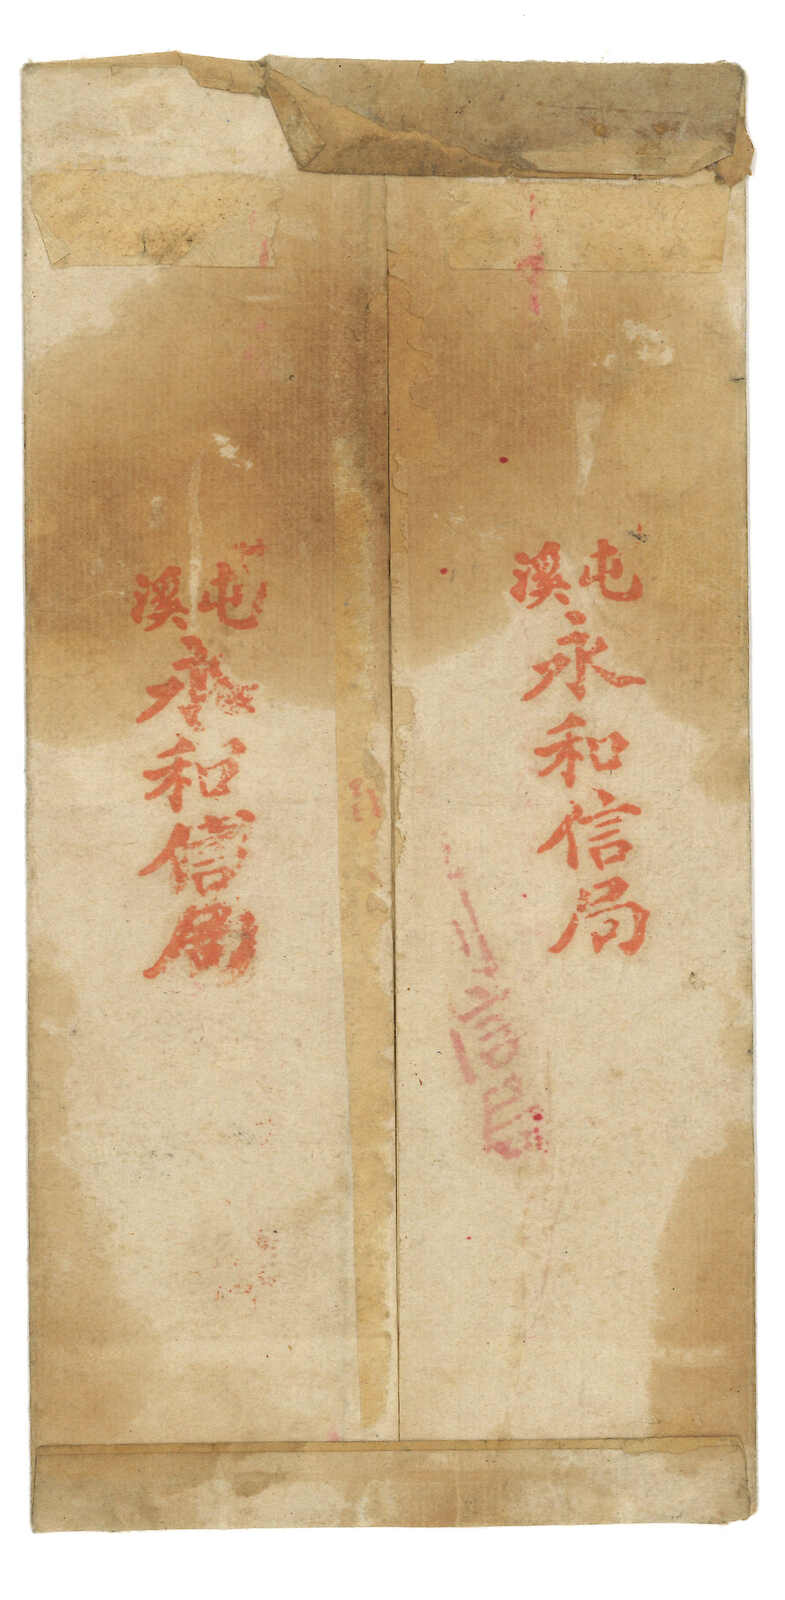 屯溪
永和信局
屯溪
永和信局